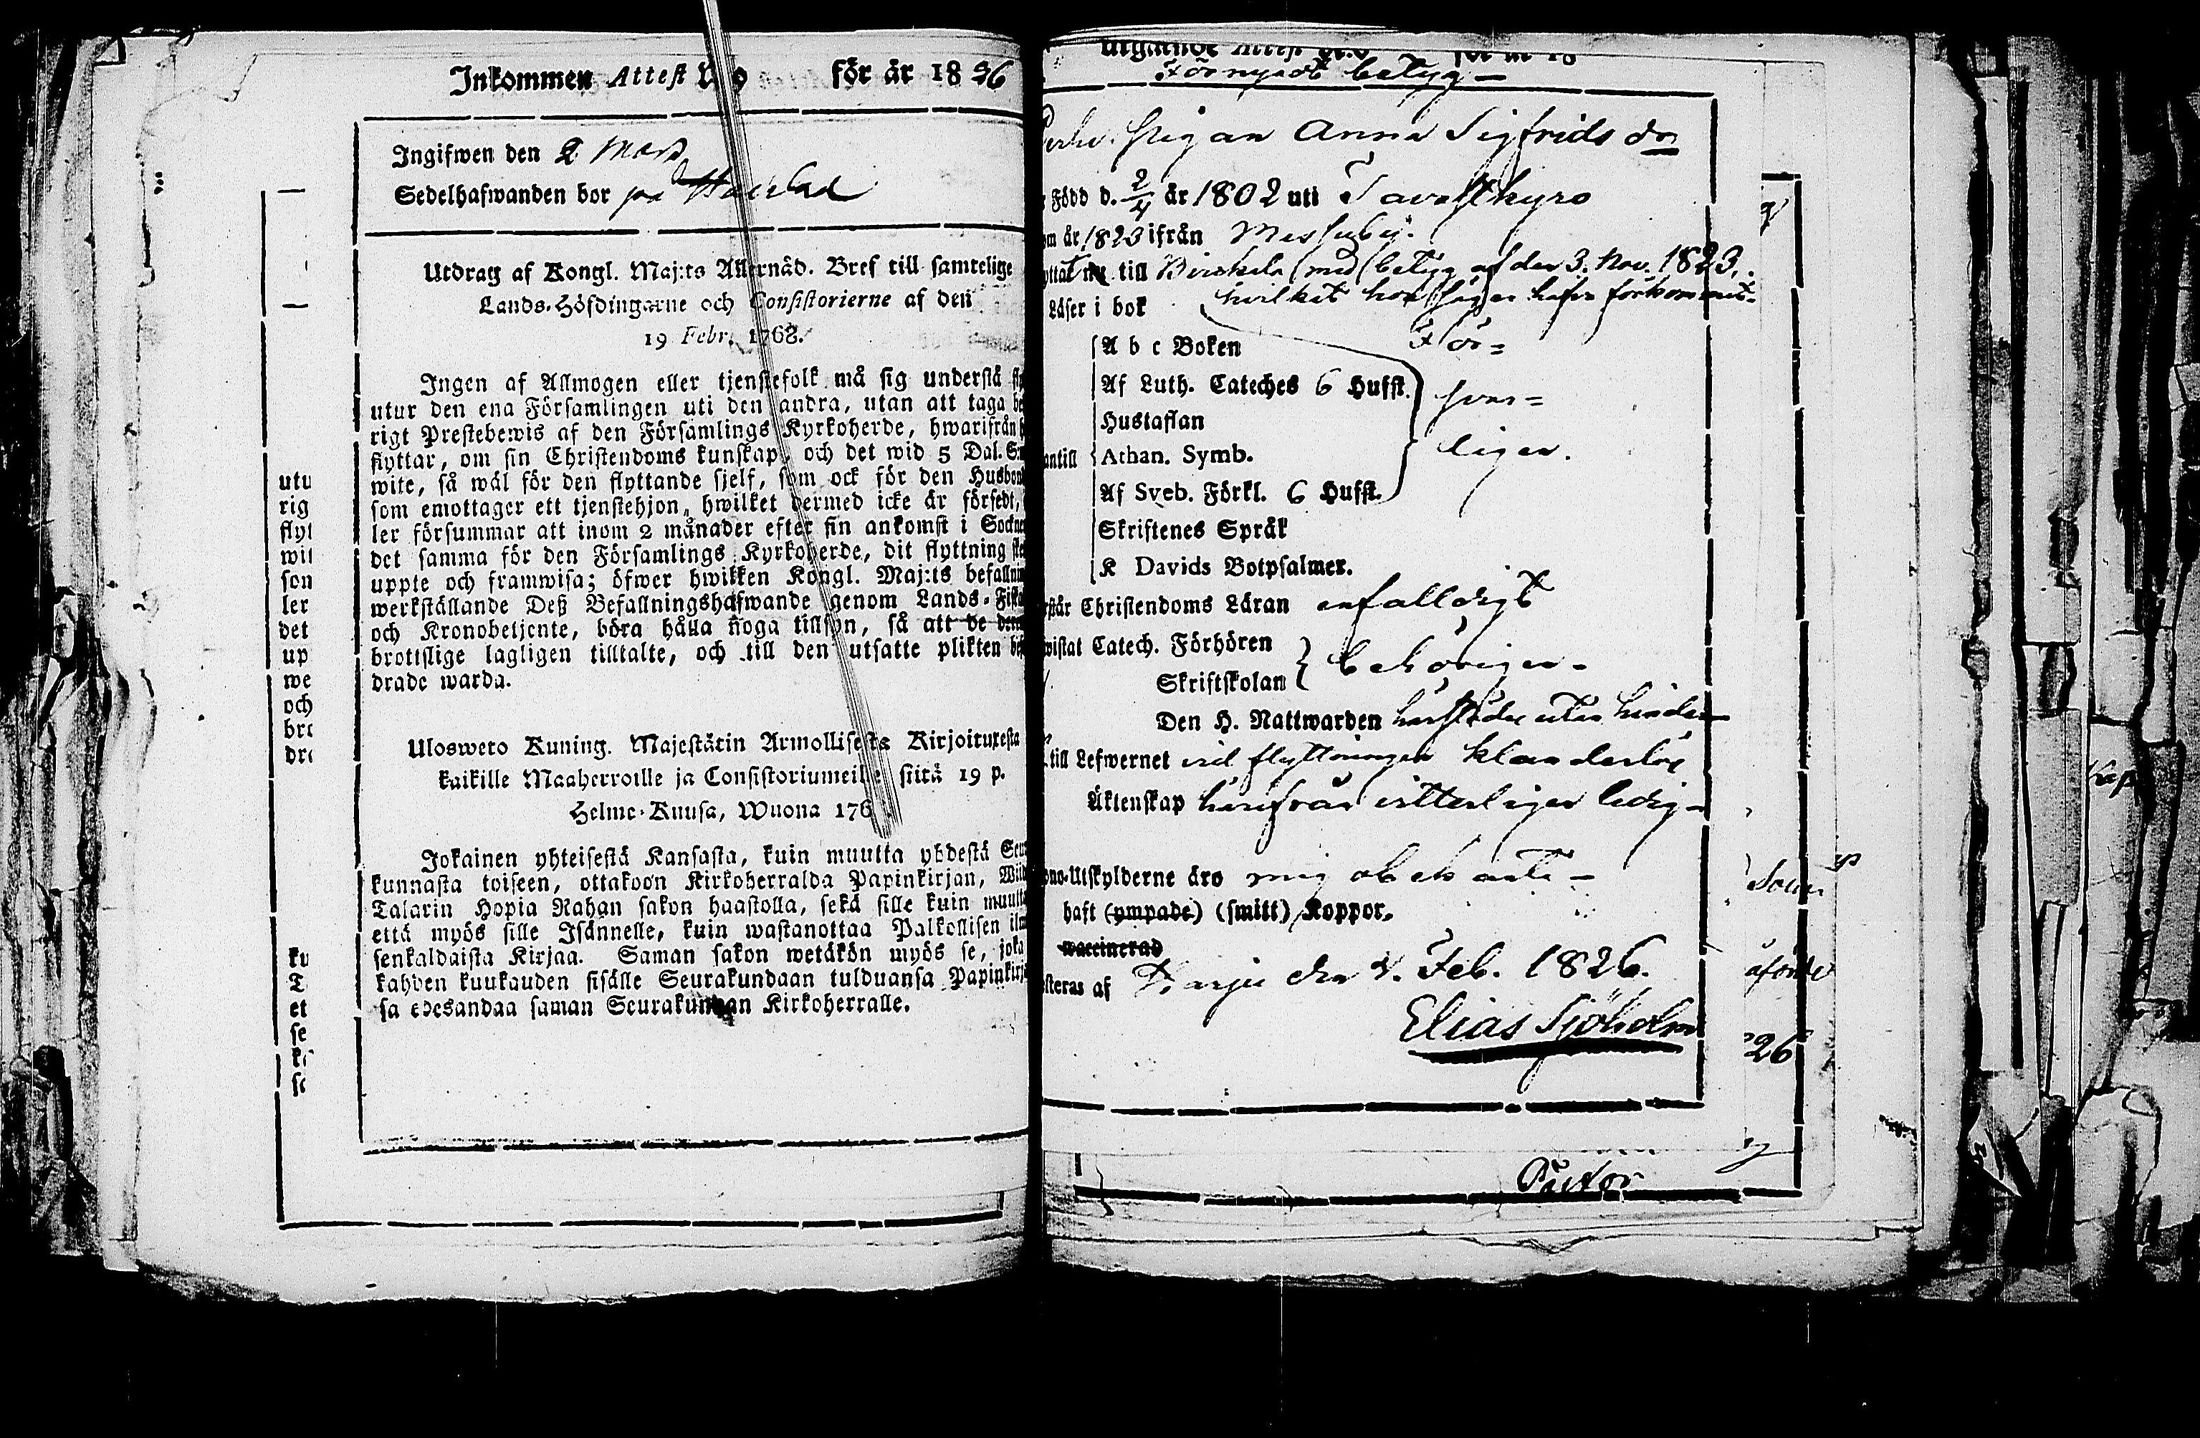 Inkommen Attest N:o för år 1826
Ingifwen den 2 Mars
Sedelhafwanden bor på
Utdrag af Kongl. Maj:ts Allernåd. Bref till samtelige
Lands-Höfdingarne och Consistorierne af den
19 Febr. 1768.
Ingen af Allmogen eller tjenstefolk må sig understå
utur den ena Församlingen uti den andra, utan att taga
rigt Prestebewis af den Församlings Kyrkoherde, hwarifrån
flyttar, om sin Christendoms kunskap, och det wid 5 Dal. S:m
wite, så wäl för den flyttande sjelf, som ock för den Husbon
som emottager ett tjenstehjon, hwilket dermed icke är försedt,
ler försummar att inom 2 månader efter sin ankomst i Sockne
det samma för den Församlings Kyrkoherde, dit flyttning
uppte och framwisa; öfwer hwilken Kongl. Maj:ts befallnin
werkställande Deß Befallningshafwande genom Lands-Fiska
och Kronobetjente, böra hålla noga tillsyn, så att de
brottslige lagligen tilltalte, och till den utsatte plikten
drade warda.
Ulosweto Kuning. Majestätin Armollisesta Kirjoituxesta
kaikille Maaherroille ja Consistoriumeille siitä 19 p.
Helme-Kuusa, Wuona 176
Jokainen yhteisestä Kansasta, kuin muutta yhdestä Seu
kunnasta toiseen, ottakoon Kirkoherralda Papinkirjan, Wiid
Talarin Hopia Rahan sakon haastolla, sekä sille kuin muutta
että myös sille Isännelle, kuin wastanottaa Palkollisen ilm
senkaldaista Kirjaa. Saman sakon wetäkön myös se, joka
kahden kuukauden sisälle Seurakundaan tulduansa Papinkirja
sa edesandaa saman Seurakunnan Kirkoherralle.
utu
rig
flyt
wit
som
ler
det
up
we
och
bro
dra
ku
T
et
se
ka
sa
Utgående Attest N:o för år 18
Förnyadt betyg
Pigan Anna Sigfrids dr
Född d. 2/4 år 1802 uti Tavastkyro
om år 1823 ifrån Messuby.
yttat till Birkkala med betyg af den 3. Nov. 1823,
hvilket hon säger hafva förkommit.
Läser i bok
A b c Boken För=
Af Luth. Cateches 6 Hufst. svar=
Hustaflan
antill Athan. Symb. ligen.
Af Sveb. Förkl. 6 Hufst.
Skriftenes Språk
K Davids Botpsalmer.
rstår Christendoms Läran enfalldigt
wistat Catech. Förhören
behörigen
Skriftskolan
Den H. Nattwarden härstädes utan hinder
till Lefwernet vid flyttningen klanderlös
Äktenskap härifrån vitterligen ledig
ono-Utskylderne äro mig obekante
haft (ympade) (smitt) Koppor.
waccinerad
steras af Karju den 4. Feb. 1826.
Elias Sjöholm
26
Pastor